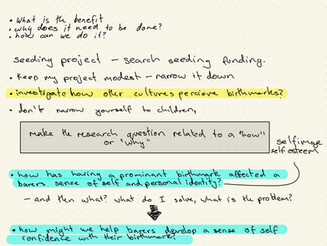 • What is the benefit
• why does it need to be done?
• how can we do it?
seeding project – search seeding funding.
• keep my project modest – narrow it down
• investigate how other cultures percieve birthmarks?
• don't narrow yourself to children,
make the research question related to a "how"
or "why"
self image
self esteem
• how has having a prominant birthmark affected a
barers sense of self and personal identity?
– and then what? what do I solve, what is the problem?
• how might we help barers develop a sense of self
confidence with their birthmark?